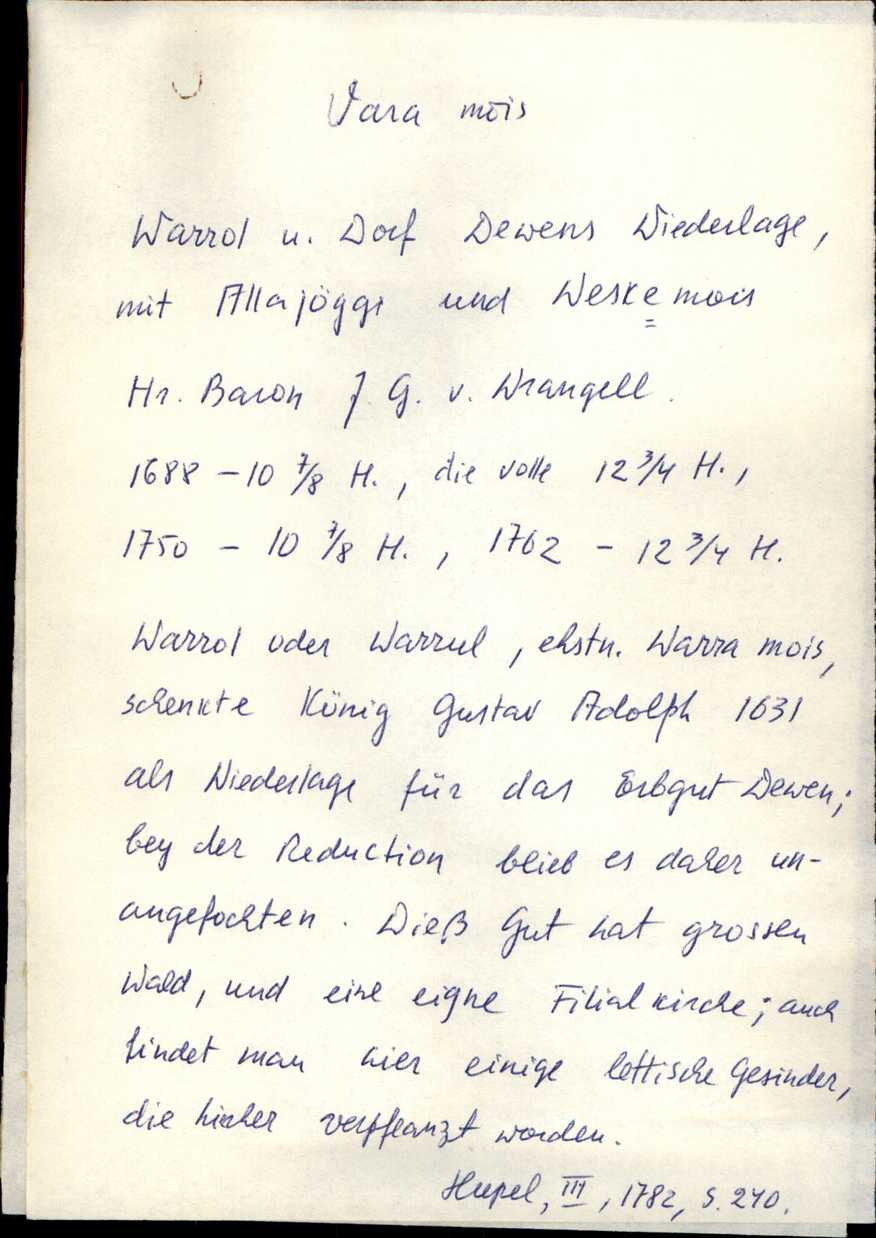 Vara mõis
Warrol u. Dorf Dewens Niederlage,
mit Allajöggi und Weske mois
Hr. Baron J. G. v. Wrangell.
1688 – 10 7/8 H., die volle 12 3/4 H.,
1750 – 10 7/8 H., 1762 – 12 3/4 H.
Warrol oder Warrul, ehstn. Warra mois,
schenkte König Gustav Adolph 1631
als Niederlage für das Erbgut Dewen;
bey der Reduction blieb es daher un-
angefochten. Dieß Gut hat grossen
Wald, und eine eigne Filialkirche; auch
findet man hier einige lettische Gesinder,
die hieher verpflanzt worden.
Hupel, III, 1782, S. 240.